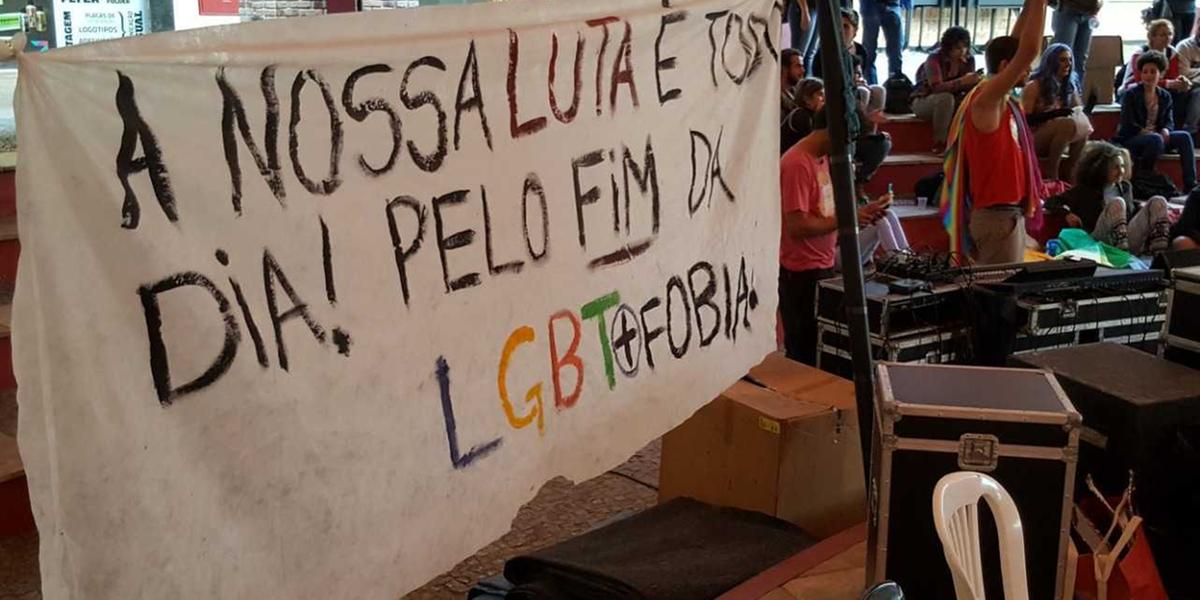 PLACAS DE
LOGOTIPOS
A NOSSA LUTA É TODO
DIA! PELO FIM DA
LGBT+FOBIA.